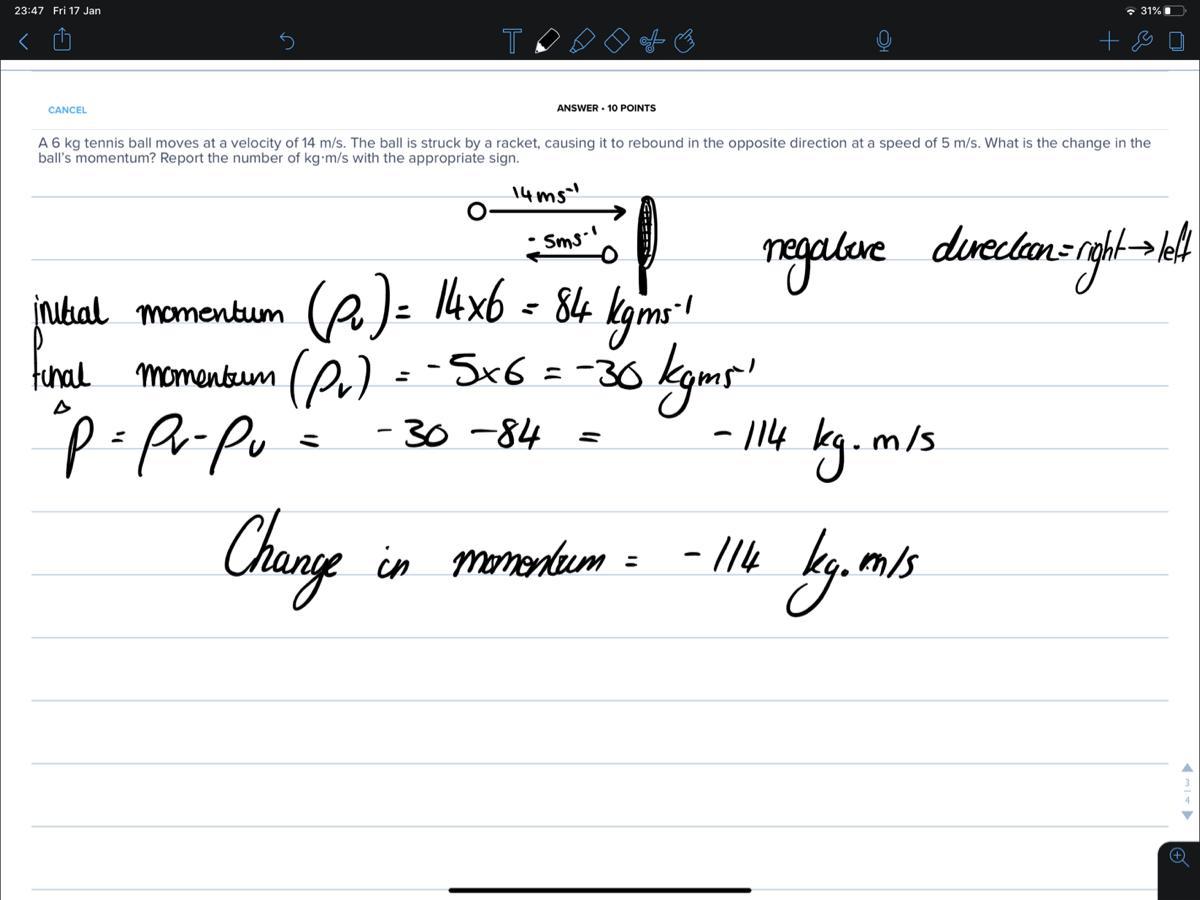 23:47 Fri 17 Jan
31%
T
CANCEL
ANSWER • 10 POINTS
A 6 kg tennis ball moves at a velocity of 14 m/s. The ball is struck by a racket, causing it to rebound in the opposite direction at a speed of 5 m/s. What is the change in the
ball's momentum? Report the number of kg·m/s with the appropriate sign.
14ms⁻¹
- 5ms⁻¹
negative direction = right → left
initial momentum (Pu) = 14x6 = 84 kgms⁻¹
final momentum (Pv) = -5x6 = -30 kgms⁻¹
ΔP = Pv - Pu = -30 -84 = -114 kg. m/s
Change in momentum = -114 kg. m/s
3
4